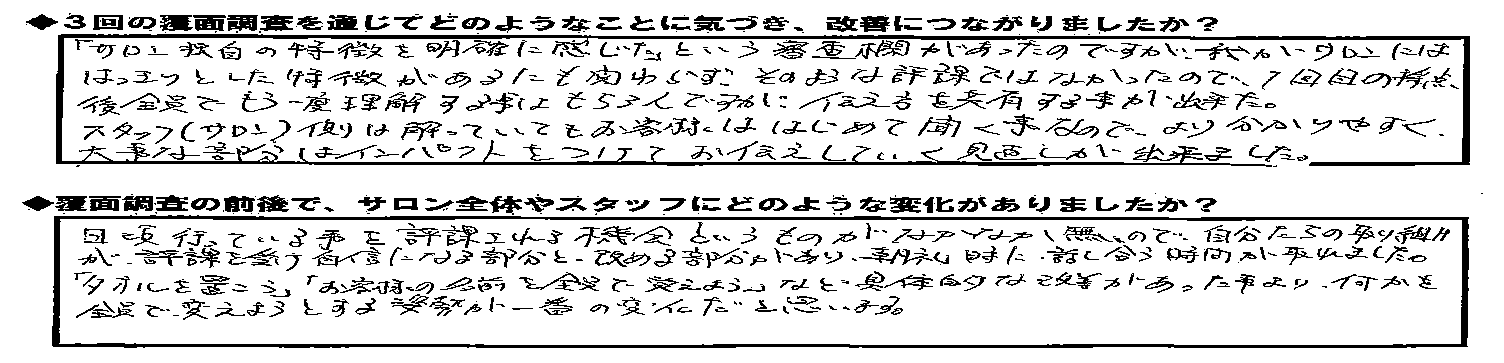 ◆３回の覆面調査を通じてどのようなことに気づき、改善につながりましたか？
「サロン独自の特徴を明確に感じた」という審査欄があったのですが、我がサロンには
はっきりとした特徴があるにも関わらず、そのような評課ではなかったので、1回目の採点
後全員でもう一度理解する事はもちろんですが、伝え方を共有する事が出来た。
スタッフ（サロン）側は解っていてもお客様にははじめて聞く事なので、より分かりやすく、
大事な部分はインパクトをつけてお伝えしていく見直しが出来ました。
◆覆面調査の前後で、サロン全体やスタッフにどのような変化がありましたか？
日頃行っている事を評課される機会というものがなかなか無いので、自分たちの取り組み
が、評課を受け自信になる部分と、改める部分があり、朝礼時に話し合う時間が取れました。
「タオルを置こう」「お客様の名前を全員で覚えよう」など、具体的な改善があった事より、何かを
全員で変えようとする姿勢が一番の変化だと思います。